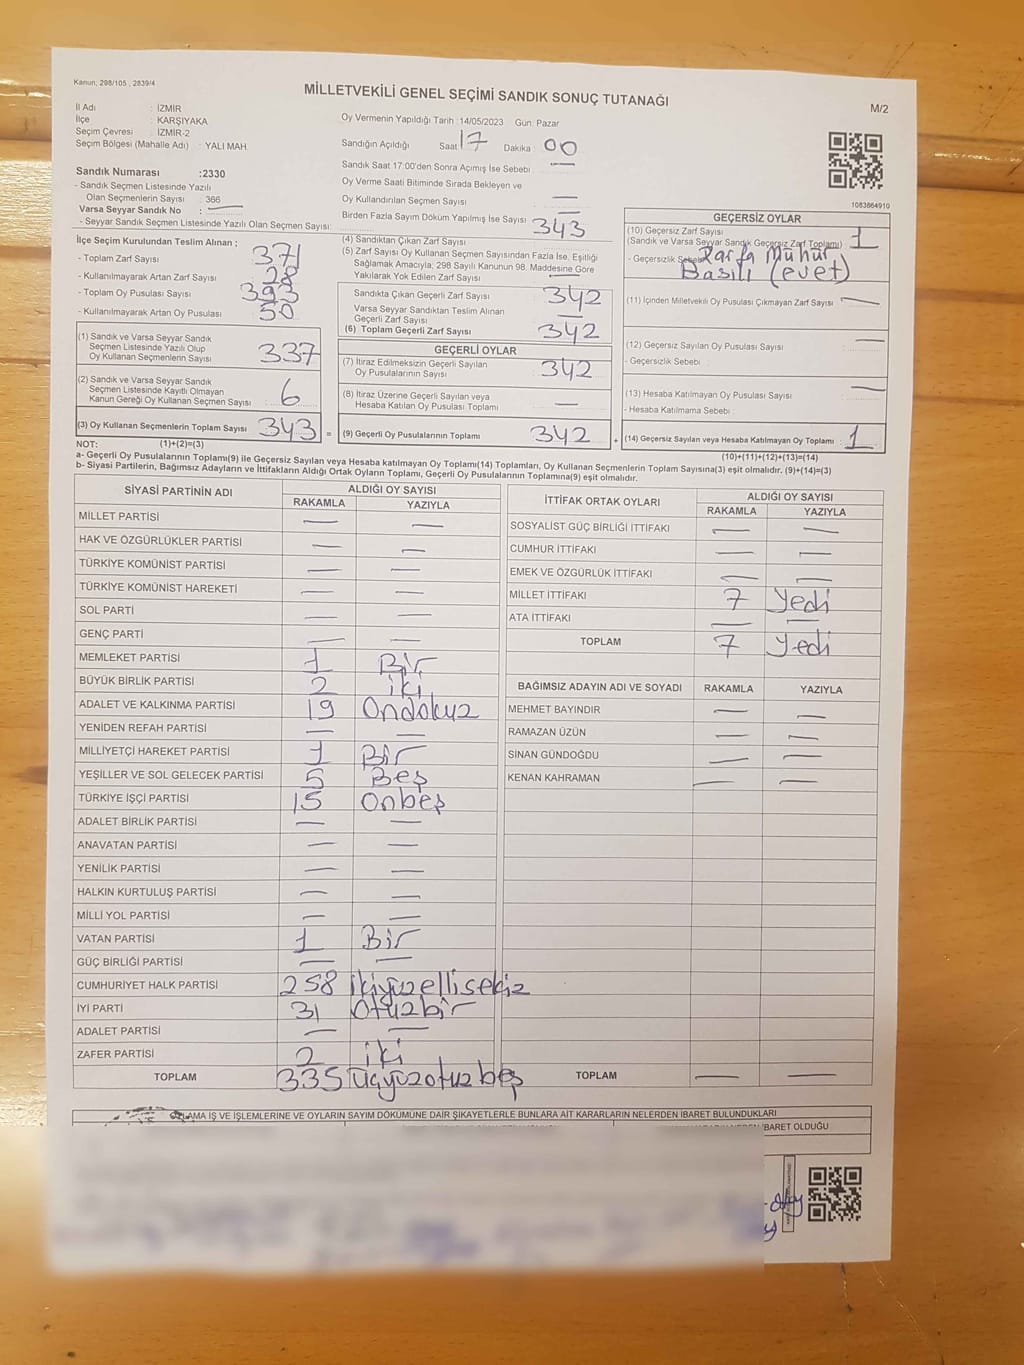 Kanun; 298/105 , 2839/4
MİLLETVEKİLİ GENEL SEÇİMİ SANDIK SONUÇ TUTANAĞI
M/2
İl Adı : İZMİR
İlçe : KARŞIYAKA
Seçim Çevresi : İZMİR-2
Seçim Bölgesi (Mahalle Adı) : YALI MAH.
Sandık Numarası :2330
- Sandık Seçmen Listesinde Yazılı
Olan Seçmenlerin Sayısı : 366
Varsa Seyyar Sandık No : —
- Seyyar Sandık Seçmen Listesinde Yazılı Olan Seçmen Sayısı:
Oy Vermenin Yapıldığı Tarih :14/05/2023 Gün: Pazar
Sandığın Açıldığı Saat 17 Dakika 00
Sandık Saat 17:00'den Sonra Açımış İse Sebebi : —
Oy Verme Saati Bitiminde Sırada Bekleyen ve
Oy Kullandırılan Seçmen Sayısı —
Birden Fazla Sayım Döküm Yapılmış İse Sayısı —
1083664910
İlçe Seçim Kurulundan Teslim Alınan ;
- Toplam Zarf Sayısı 371
- Kullanılmayarak Artan Zarf Sayısı 28
- Toplam Oy Pusulası Sayısı 393
- Kullanılmayarak Artan Oy Pusulası 50
(1) Sandık ve Varsa Seyyar Sandık
Seçmen Listesinde Yazılı Olup
Oy Kullanan Seçmenlerin Sayısı 337
(2) Sandık ve Varsa Seyyar Sandık
Seçmen Listesinde Kayıtlı Olmayan
Kanun Gereği Oy Kullanan Seçmen Sayısı 6
(3) Oy Kullanan Seçmenlerin Toplam Sayısı 343 =
(4) Sandıktan Çıkan Zarf Sayısı 343
(5) Zarf Sayısı Oy Kullanan Seçmen Sayısından Fazla İse, Eşitliği
Sağlamak Amacıyla; 298 Sayılı Kanunun 98. Maddesine Göre
Yakılarak Yok Edilen Zarf Sayısı —
Sandıkta Çıkan Geçerli Zarf Sayısı 342
Varsa Seyyar Sandıktan Teslim Alınan
Geçerli Zarf Sayısı —
(6) Toplam Geçerli Zarf Sayısı 342
GEÇERLİ OYLAR
(7) İtiraz Edilmeksizin Geçerli Sayılan
Oy Pusulalarının Sayısı 342
(8) İtiraz Üzerine Geçerli Sayılan veya
Hesaba Katılan Oy Pusulası Toplamı —
(9) Geçerli Oy Pusulalarının Toplamı 342 +
GEÇERSİZ OYLAR
(10) Geçersiz Zarf Sayısı
(Sandık ve Varsa Seyyar Sandık Geçersiz Zarf Toplamı) 1
- Geçersizlik Sebebi Zarfa Mühür
Basılı (evet)
(11) İçinden Milletvekili Oy Pusulası Çıkmayan Zarf Sayısı —
(12) Geçersiz Sayılan Oy Pusulası Sayısı —
- Geçersizlik Sebebi :
(13) Hesaba Katılmayan Oy Pusulası Sayısı —
- Hesaba Katılmama Sebebi :
(14) Geçersiz Sayılan veya Hesaba Katılmayan Oy Toplamı 1
NOT: (1)+(2)=(3)
(10)+(11)+(12)+(13)=(14)
a- Geçerli Oy Pusulalarının Toplamı(9) ile Geçersiz Sayılan veya Hesaba katılmayan Oy Toplamı(14) Toplamları, Oy Kullanan Seçmenlerin Toplam Sayısına(3) eşit olmalıdır. (9)+(14)=(3)
b- Siyasi Partilerin, Bağımsız Adayların ve İttifakların Aldığı Ortak Oyların Toplamı, Geçerli Oy Pusulalarının Toplamına(9) eşit olmalıdır.
SİYASİ PARTİNİN ADI ALDIĞI OY SAYISI
RAKAMLA YAZIYLA
MİLLET PARTİSİ — —
HAK VE ÖZGÜRLÜKLER PARTİSİ — —
TÜRKİYE KOMÜNİST PARTİSİ — —
TÜRKİYE KOMÜNİST HAREKETİ — —
SOL PARTİ — —
GENÇ PARTİ — —
MEMLEKET PARTİSİ 1 Bir
BÜYÜK BİRLİK PARTİSİ 2 iki
ADALET VE KALKINMA PARTİSİ 19 Ondokuz
YENİDEN REFAH PARTİSİ — —
MİLLİYETÇİ HAREKET PARTİSİ 1 Bir
YEŞİLLER VE SOL GELECEK PARTİSİ 5 Beş
TÜRKİYE İŞÇİ PARTİSİ 15 Onbeş
ADALET BİRLİK PARTİSİ — —
ANAVATAN PARTİSİ — —
YENİLİK PARTİSİ — —
HALKIN KURTULUŞ PARTİSİ — —
MİLLİ YOL PARTİSİ — —
VATAN PARTİSİ 1 Bir
GÜÇ BİRLİĞİ PARTİSİ — —
CUMHURİYET HALK PARTİSİ 258 ikiyüzellisekiz
İYİ PARTİ 31 Otuzbir
ADALET PARTİSİ — —
ZAFER PARTİSİ 2 iki
TOPLAM 335 üçyüzotuzbeş
İTTİFAK ORTAK OYLARI ALDIĞI OY SAYISI
RAKAMLA YAZIYLA
SOSYALİST GÜÇ BİRLİĞİ İTTİFAKI — —
CUMHUR İTTİFAKI — —
EMEK VE ÖZGÜRLÜK İTTİFAKI — —
MİLLET İTTİFAKI 7 Yedi
ATA İTTİFAKI — —
TOPLAM 7 Yedi
BAĞIMSIZ ADAYIN ADI VE SOYADI RAKAMLA YAZIYLA
MEHMET BAYINDIR — —
RAMAZAN ÜZÜN — —
SİNAN GÜNDOĞDU — —
KENAN KAHRAMAN — —
TOPLAM — —
İŞ VE İŞLEMLERİNE VE OYLARIN SAYIM DÖKÜMÜNE DAİR ŞİKAYETLERLE BUNLARA AİT KARARLARIN NELERDEN İBARET BULUNDUKLARI
İBARET OLDUĞU